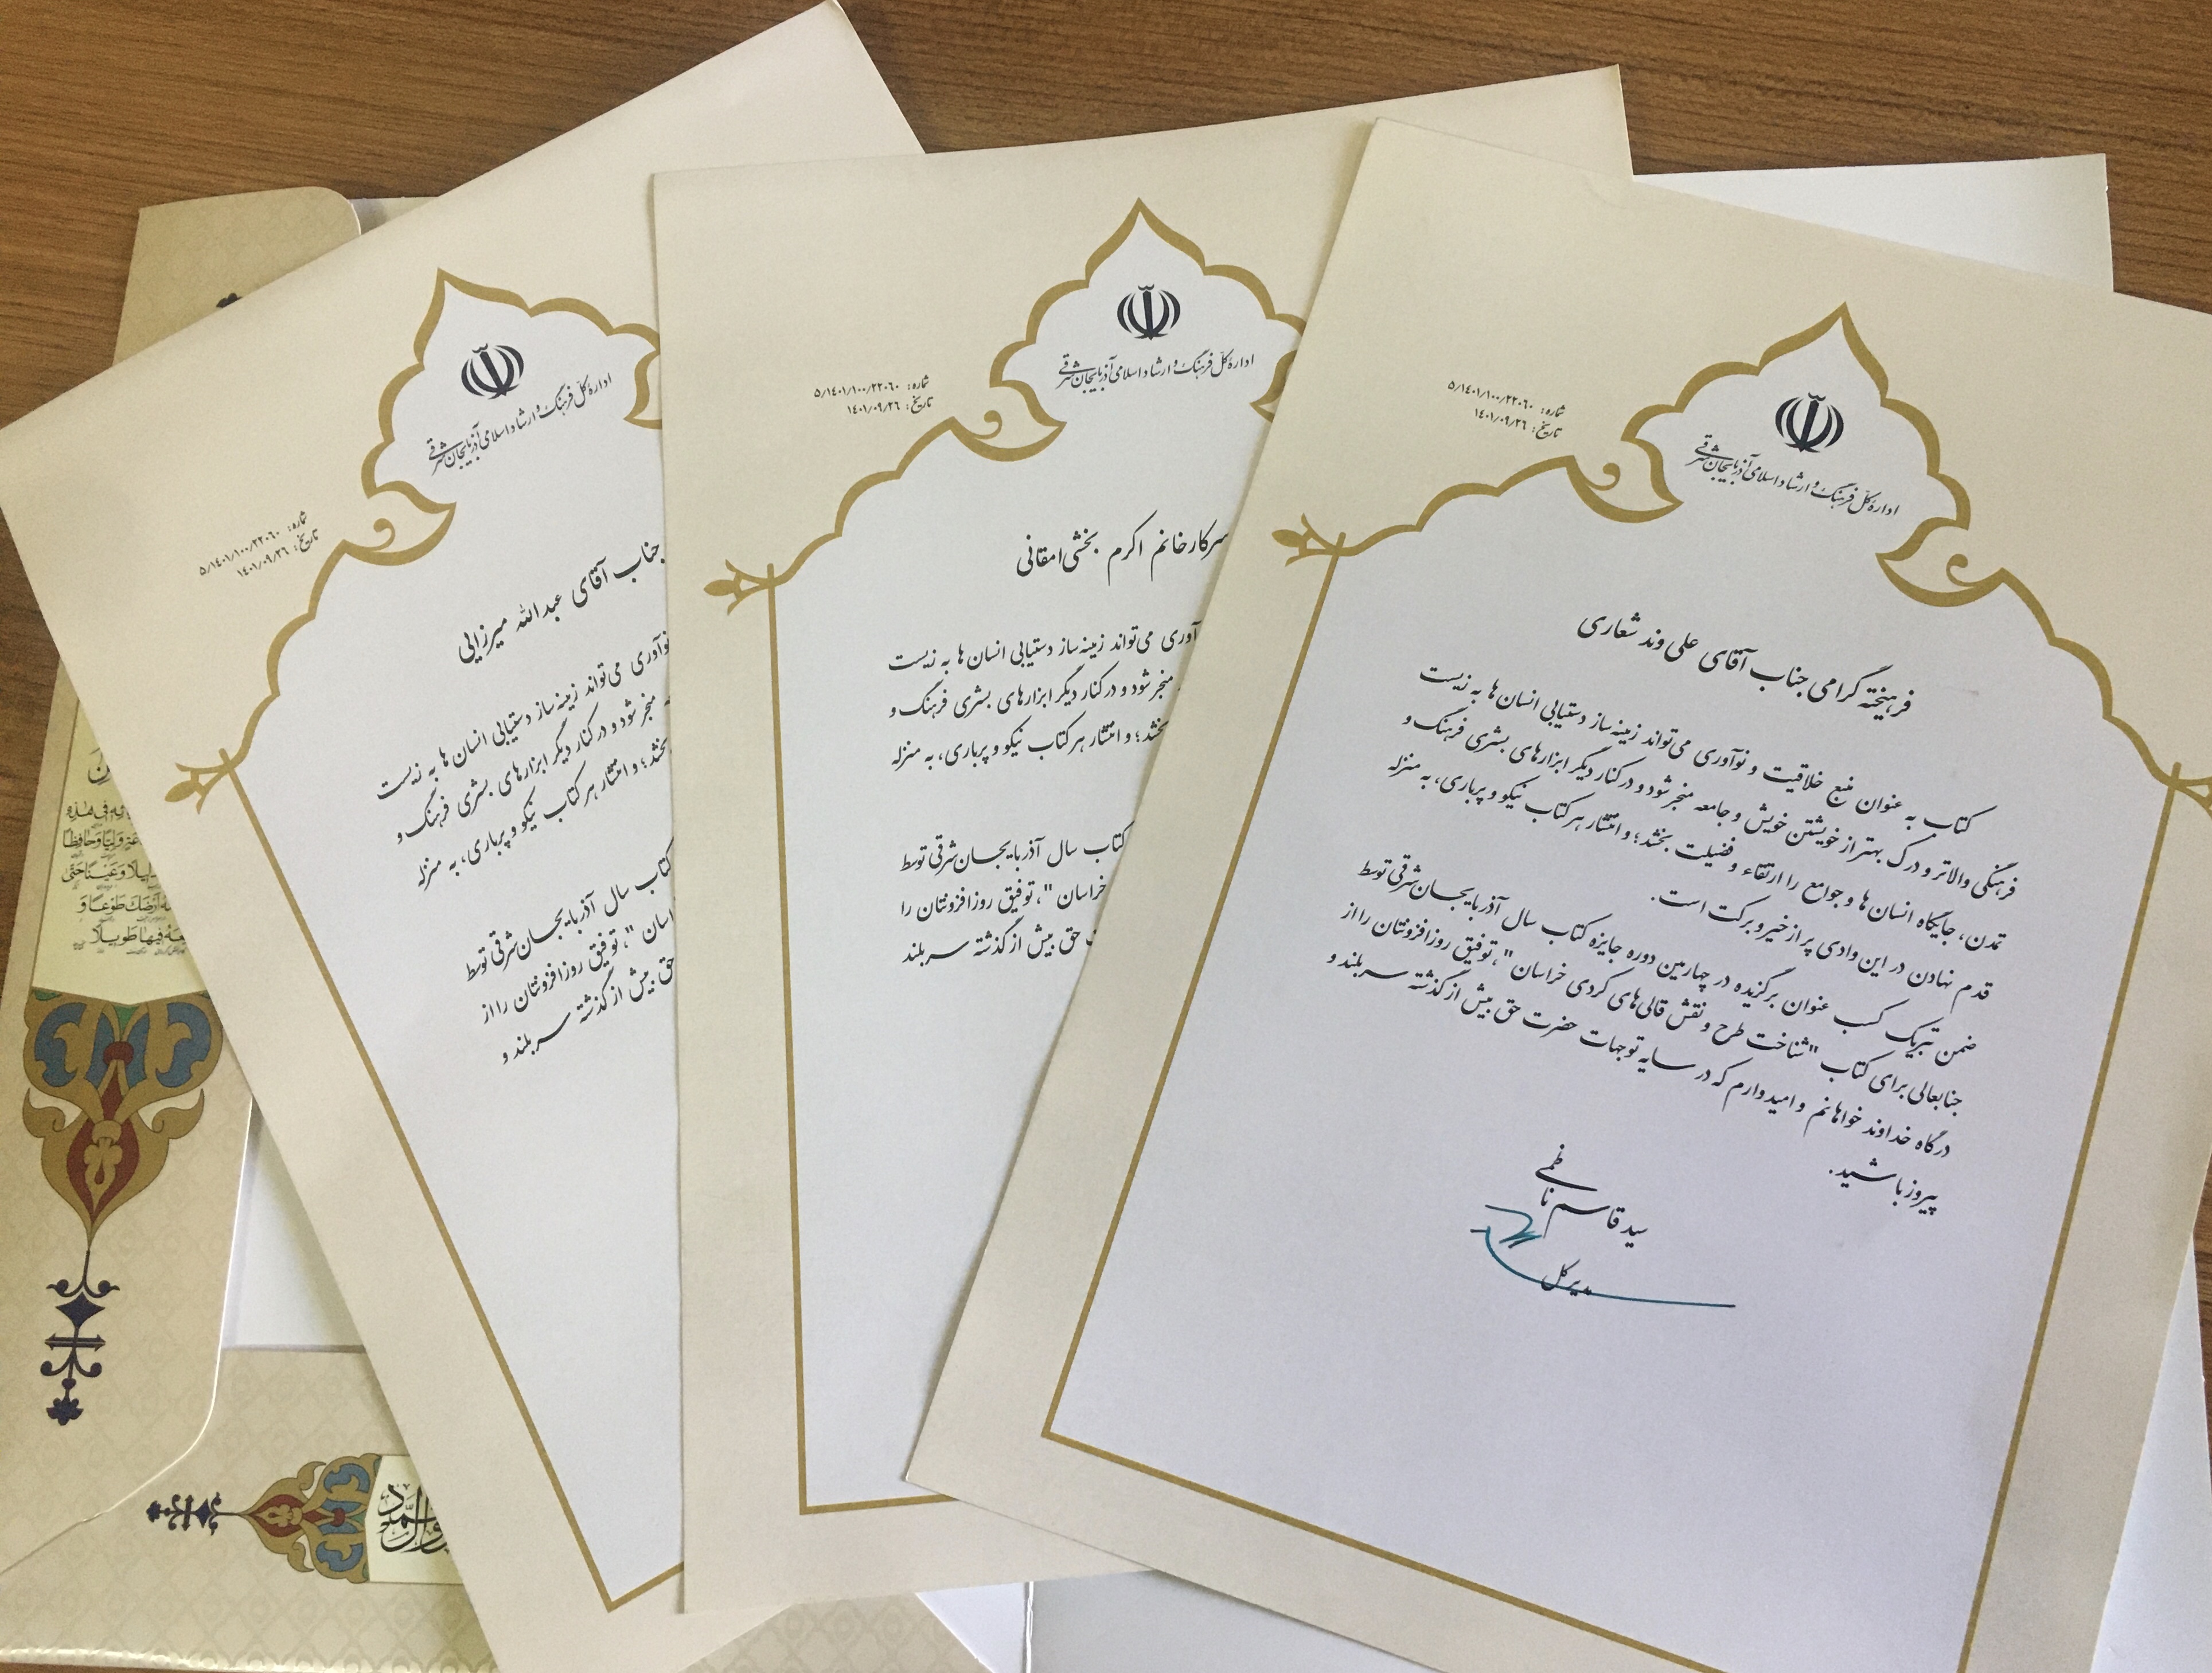 اداره کل فرهنگ و ارشاد اسلامی آذربایجان شرقی
شماره: ۵/۱۴۰۱/۱۰۰/۲۲۰۶۰
تاریخ: ۱۴۰۱/۰۹/۲۶
فرهیخته گرامی جناب آقای علی وند شعاری
کتاب به عنوان منبع خلاقیت و نوآوری می‌تواند زمینه‌ساز دستیابی انسان‌ها به زیست
فرهنگی والاتر و درک بهتر از خویشتن خویش و جامعه منجر شود و در کنار دیگر ابزارهای بشری فرهنگ و
تمدن، جایگاه انسان‌ها و جوامع را ارتقاء و فضیلت بخشد؛ و انتشار هر کتاب نیکو و پرباری، به منزله
قدم نهادن در این وادی پر از خیر و برکت است.
ضمن تبریک کسب عنوان برگزیده در چهارمین دوره جایزه کتاب سال آذربایجان شرقی توسط
جنابعالی برای کتاب "شناخت طرح و نقش قالی‌های کردی خراسان"، توفیق روزافزونتان را از
درگاه خداوند خواهانم و امیدوارم که در سایه توجهات حضرت حق بیش از گذشته سربلند و
پیروز باشید.
سید قاسم ناظمی
مدیر کل
اداره کل فرهنگ و ارشاد اسلامی آذربایجان شرقی
شماره: ۵/۱۴۰۱/۱۰۰/۲۲۰۶۰
تاریخ: ۱۴۰۱/۰۹/۲۶
سرکار خانم اکرم بخشی امقانی
آوری می‌تواند زمینه‌ساز دستیابی انسان‌ها به زیست
منجر شود و در کنار دیگر ابزارهای بشری فرهنگ و
بخشد؛ و انتشار هر کتاب نیکو و پرباری، به منزله
کتاب سال آذربایجان شرقی توسط
خراسان"، توفیق روزافزونتان را
حق بیش از گذشته سربلند
اداره کل فرهنگ و ارشاد اسلامی آذربایجان شرقی
شماره: ۵/۱۴۰۱/۱۰۰/۲۲۰۶۰
تاریخ: ۱۴۰۱/۰۹/۲۶
جناب آقای عبدالله میرزایی
نوآوری می‌تواند زمینه‌ساز دستیابی انسان‌ها به زیست
منجر شود و در کنار دیگر ابزارهای بشری فرهنگ و
بخشد؛ و انتشار هر کتاب نیکو و پرباری، به منزله
کتاب سال آذربایجان شرقی توسط
اسان"، توفیق روزافزونتان را از
حق بیش از گذشته سربلند و
فی هذه
ولیا وحافظا
لیلا وعینا حتی
أرضک طوعا و
فیها طویلا